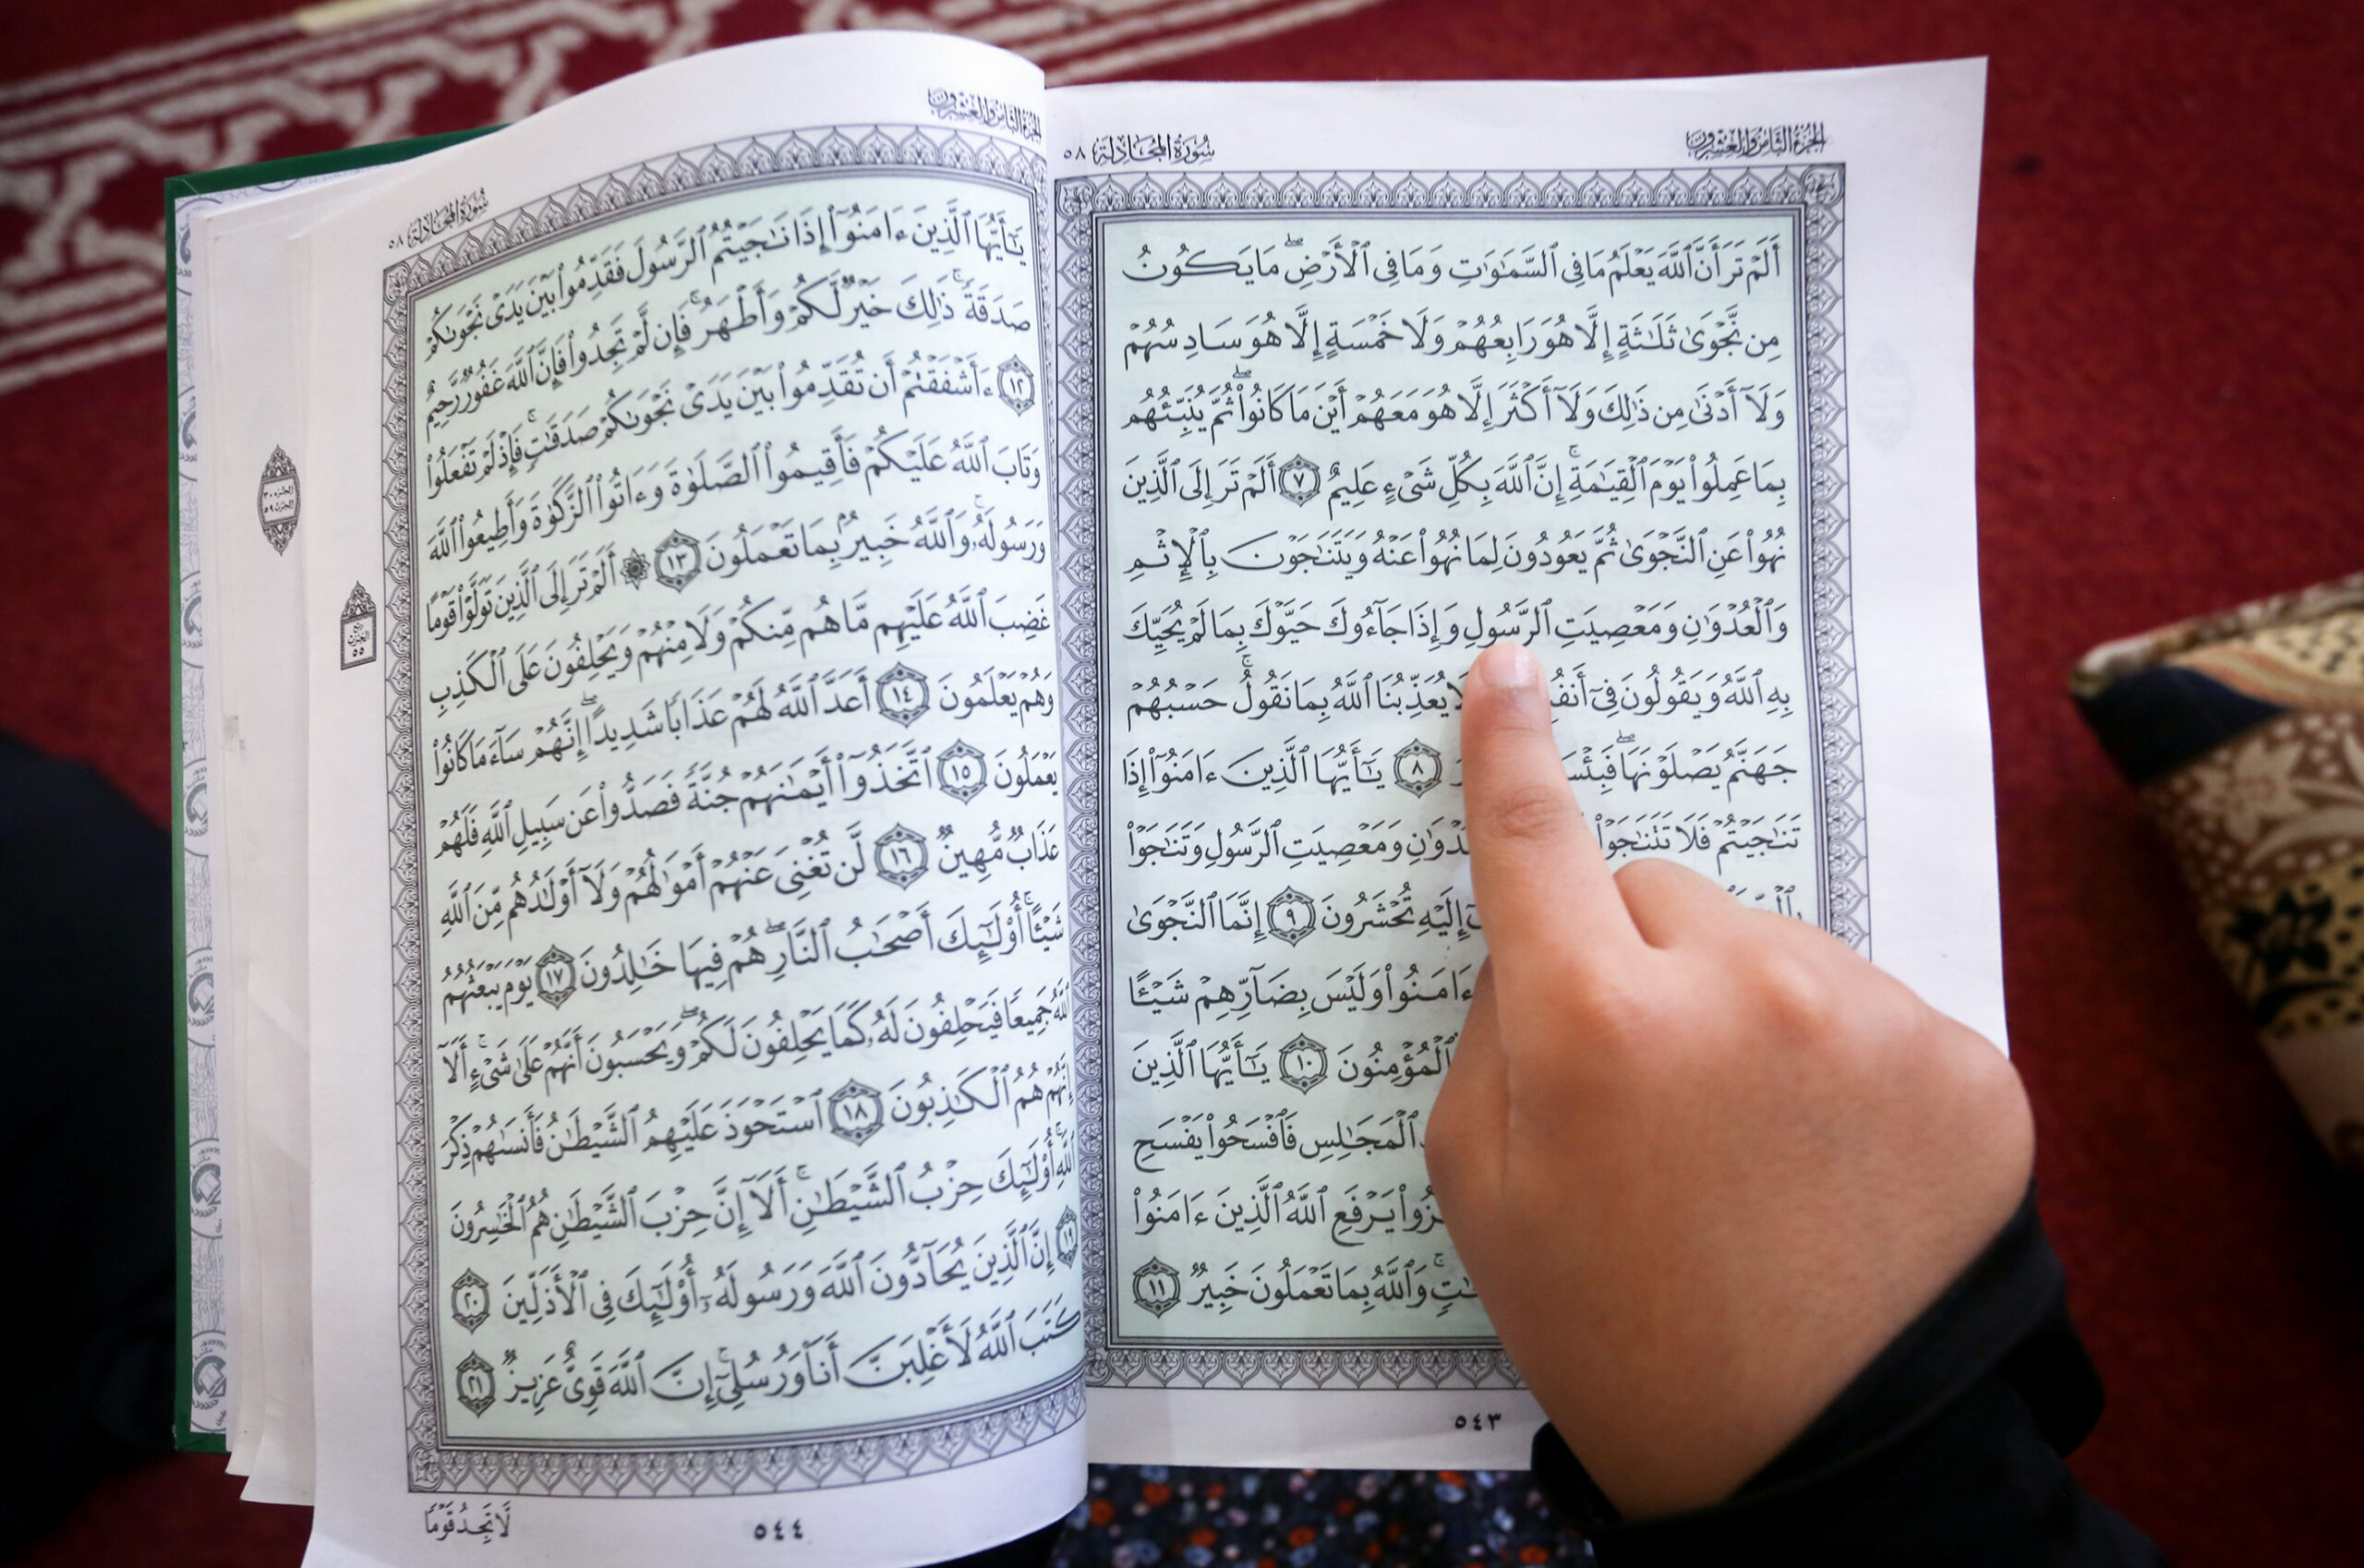 الجزء الثامن والعشرون
سورة المجادلة ٥٨
أَلَمْ تَرَ أَنَّ ٱللَّهَ يَعْلَمُ مَا فِى ٱلسَّمَٰوَٰتِ وَمَا فِى ٱلْأَرْضِ ۖ مَا يَكُونُ
مِن نَّجْوَىٰ ثَلَٰثَةٍ إِلَّا هُوَ رَابِعُهُمْ وَلَا خَمْسَةٍ إِلَّا هُوَ سَادِسُهُمْ
وَلَآ أَدْنَىٰ مِن ذَٰلِكَ وَلَآ أَكْثَرَ إِلَّا هُوَ مَعَهُمْ أَيْنَ مَا كَانُوا۟ ۖ ثُمَّ يُنَبِّئُهُم
بِمَا عَمِلُوا۟ يَوْمَ ٱلْقِيَٰمَةِ ۚ إِنَّ ٱللَّهَ بِكُلِّ شَىْءٍ عَلِيمٌ ٧ أَلَمْ تَرَ إِلَى ٱلَّذِينَ
نُهُوا۟ عَنِ ٱلنَّجْوَىٰ ثُمَّ يَعُودُونَ لِمَا نُهُوا۟ عَنْهُ وَيَتَنَٰجَوْنَ بِٱلْإِثْمِ
وَٱلْعُدْوَٰنِ وَمَعْصِيَتِ ٱلرَّسُولِ وَإِذَا جَآءُوكَ حَيَّوْكَ بِمَا لَمْ يُحَيِّكَ
بِهِ ٱللَّهُ وَيَقُولُونَ فِىٓ لَا يُعَذِّبُنَا ٱللَّهُ بِمَا نَقُولُ ۚ حَسْبُهُمْ
جَهَنَّمُ يَصْلَوْنَهَا ۖ ٨ يَٰٓأَيُّهَا ٱلَّذِينَ ءَامَنُوٓا۟ إِذَا
تَنَٰجَيْتُمْ فَلَا تَتَنَٰجَوْا۟ وَمَعْصِيَتِ ٱلرَّسُولِ وَتَنَٰجَوْا۟
إِلَيْهِ تُحْشَرُونَ ٩ إِنَّمَا ٱلنَّجْوَىٰ
ءَامَنُوا۟ وَلَيْسَ بِضَآرِّهِمْ شَيْـًٔا
ٱلْمُؤْمِنُونَ ١٠ يَٰٓأَيُّهَا ٱلَّذِينَ
ٱلْمَجَٰلِسِ فَٱفْسَحُوا۟ يَفْسَحِ
يَرْفَعِ ٱللَّهُ ٱلَّذِينَ ءَامَنُوا۟
وَٱللَّهُ بِمَا تَعْمَلُونَ خَبِيرٌ ١١
٥٤٣
الجزء الثامن والعشرون
سورة المجادلة ٥٨
يَٰٓأَيُّهَا ٱلَّذِينَ ءَامَنُوٓا۟ إِذَا نَٰجَيْتُمُ ٱلرَّسُولَ فَقَدِّمُوا۟ بَيْنَ يَدَىْ نَجْوَىٰكُمْ
صَدَقَةً ۚ ذَٰلِكَ خَيْرٌ لَّكُمْ وَأَطْهَرُ ۚ فَإِن لَّمْ تَجِدُوا۟ فَإِنَّ ٱللَّهَ غَفُورٌ رَّحِيمٌ
١٢ ءَأَشْفَقْتُمْ أَن تُقَدِّمُوا۟ بَيْنَ يَدَىْ نَجْوَىٰكُمْ صَدَقَٰتٍ ۚ فَإِذْ لَمْ تَفْعَلُوا۟
وَتَابَ ٱللَّهُ عَلَيْكُمْ فَأَقِيمُوا۟ ٱلصَّلَوٰةَ وَءَاتُوا۟ ٱلزَّكَوٰةَ وَأَطِيعُوا۟ ٱللَّهَ
وَرَسُولَهُۥ ۚ وَٱللَّهُ خَبِيرٌۢ بِمَا تَعْمَلُونَ ١٣ ۞ أَلَمْ تَرَ إِلَى ٱلَّذِينَ تَوَلَّوْا۟ قَوْمًا
غَضِبَ ٱللَّهُ عَلَيْهِم مَّا هُم مِّنكُمْ وَلَا مِنْهُمْ وَيَحْلِفُونَ عَلَى ٱلْكَذِبِ
وَهُمْ يَعْلَمُونَ ١٤ أَعَدَّ ٱللَّهُ لَهُمْ عَذَابًا شَدِيدًا ۖ إِنَّهُمْ سَآءَ مَا كَانُوا۟
يَعْمَلُونَ ١٥ ٱتَّخَذُوٓا۟ أَيْمَٰنَهُمْ جُنَّةً فَصَدُّوا۟ عَن سَبِيلِ ٱللَّهِ فَلَهُمْ
عَذَابٌ مُّهِينٌ ١٦ لَّن تُغْنِىَ عَنْهُمْ أَمْوَٰلُهُمْ وَلَآ أَوْلَٰدُهُم مِّنَ ٱللَّهِ
شَيْـًٔا ۚ أُو۟لَٰٓئِكَ أَصْحَٰبُ ٱلنَّارِ ۖ هُمْ فِيهَا خَٰلِدُونَ ١٧ يَوْمَ يَبْعَثُهُمُ
ٱللَّهُ جَمِيعًا فَيَحْلِفُونَ لَهُۥ كَمَا يَحْلِفُونَ لَكُمْ ۖ وَيَحْسَبُونَ أَنَّهُمْ عَلَىٰ شَىْءٍ ۚ أَلَآ
إِنَّهُمْ هُمُ ٱلْكَٰذِبُونَ ١٨ ٱسْتَحْوَذَ عَلَيْهِمُ ٱلشَّيْطَٰنُ فَأَنسَىٰهُمْ ذِكْرَ
ٱللَّهِ ۚ أُو۟لَٰٓئِكَ حِزْبُ ٱلشَّيْطَٰنِ ۚ أَلَآ إِنَّ حِزْبَ ٱلشَّيْطَٰنِ هُمُ ٱلْخَٰسِرُونَ
١٩ إِنَّ ٱلَّذِينَ يُحَآدُّونَ ٱللَّهَ وَرَسُولَهُۥٓ أُو۟لَٰٓئِكَ فِى ٱلْأَذَلِّينَ ٢٠
كَتَبَ ٱللَّهُ لَأَغْلِبَنَّ أَنَا۠ وَرُسُلِىٓ ۚ إِنَّ ٱللَّهَ قَوِىٌّ عَزِيزٌ ٢١
ربع
الحزب
٥٥
لَّا تَجِدُ قَوْمًا
٥٤٤
الجزء ٣٠
الحزب ٥٩